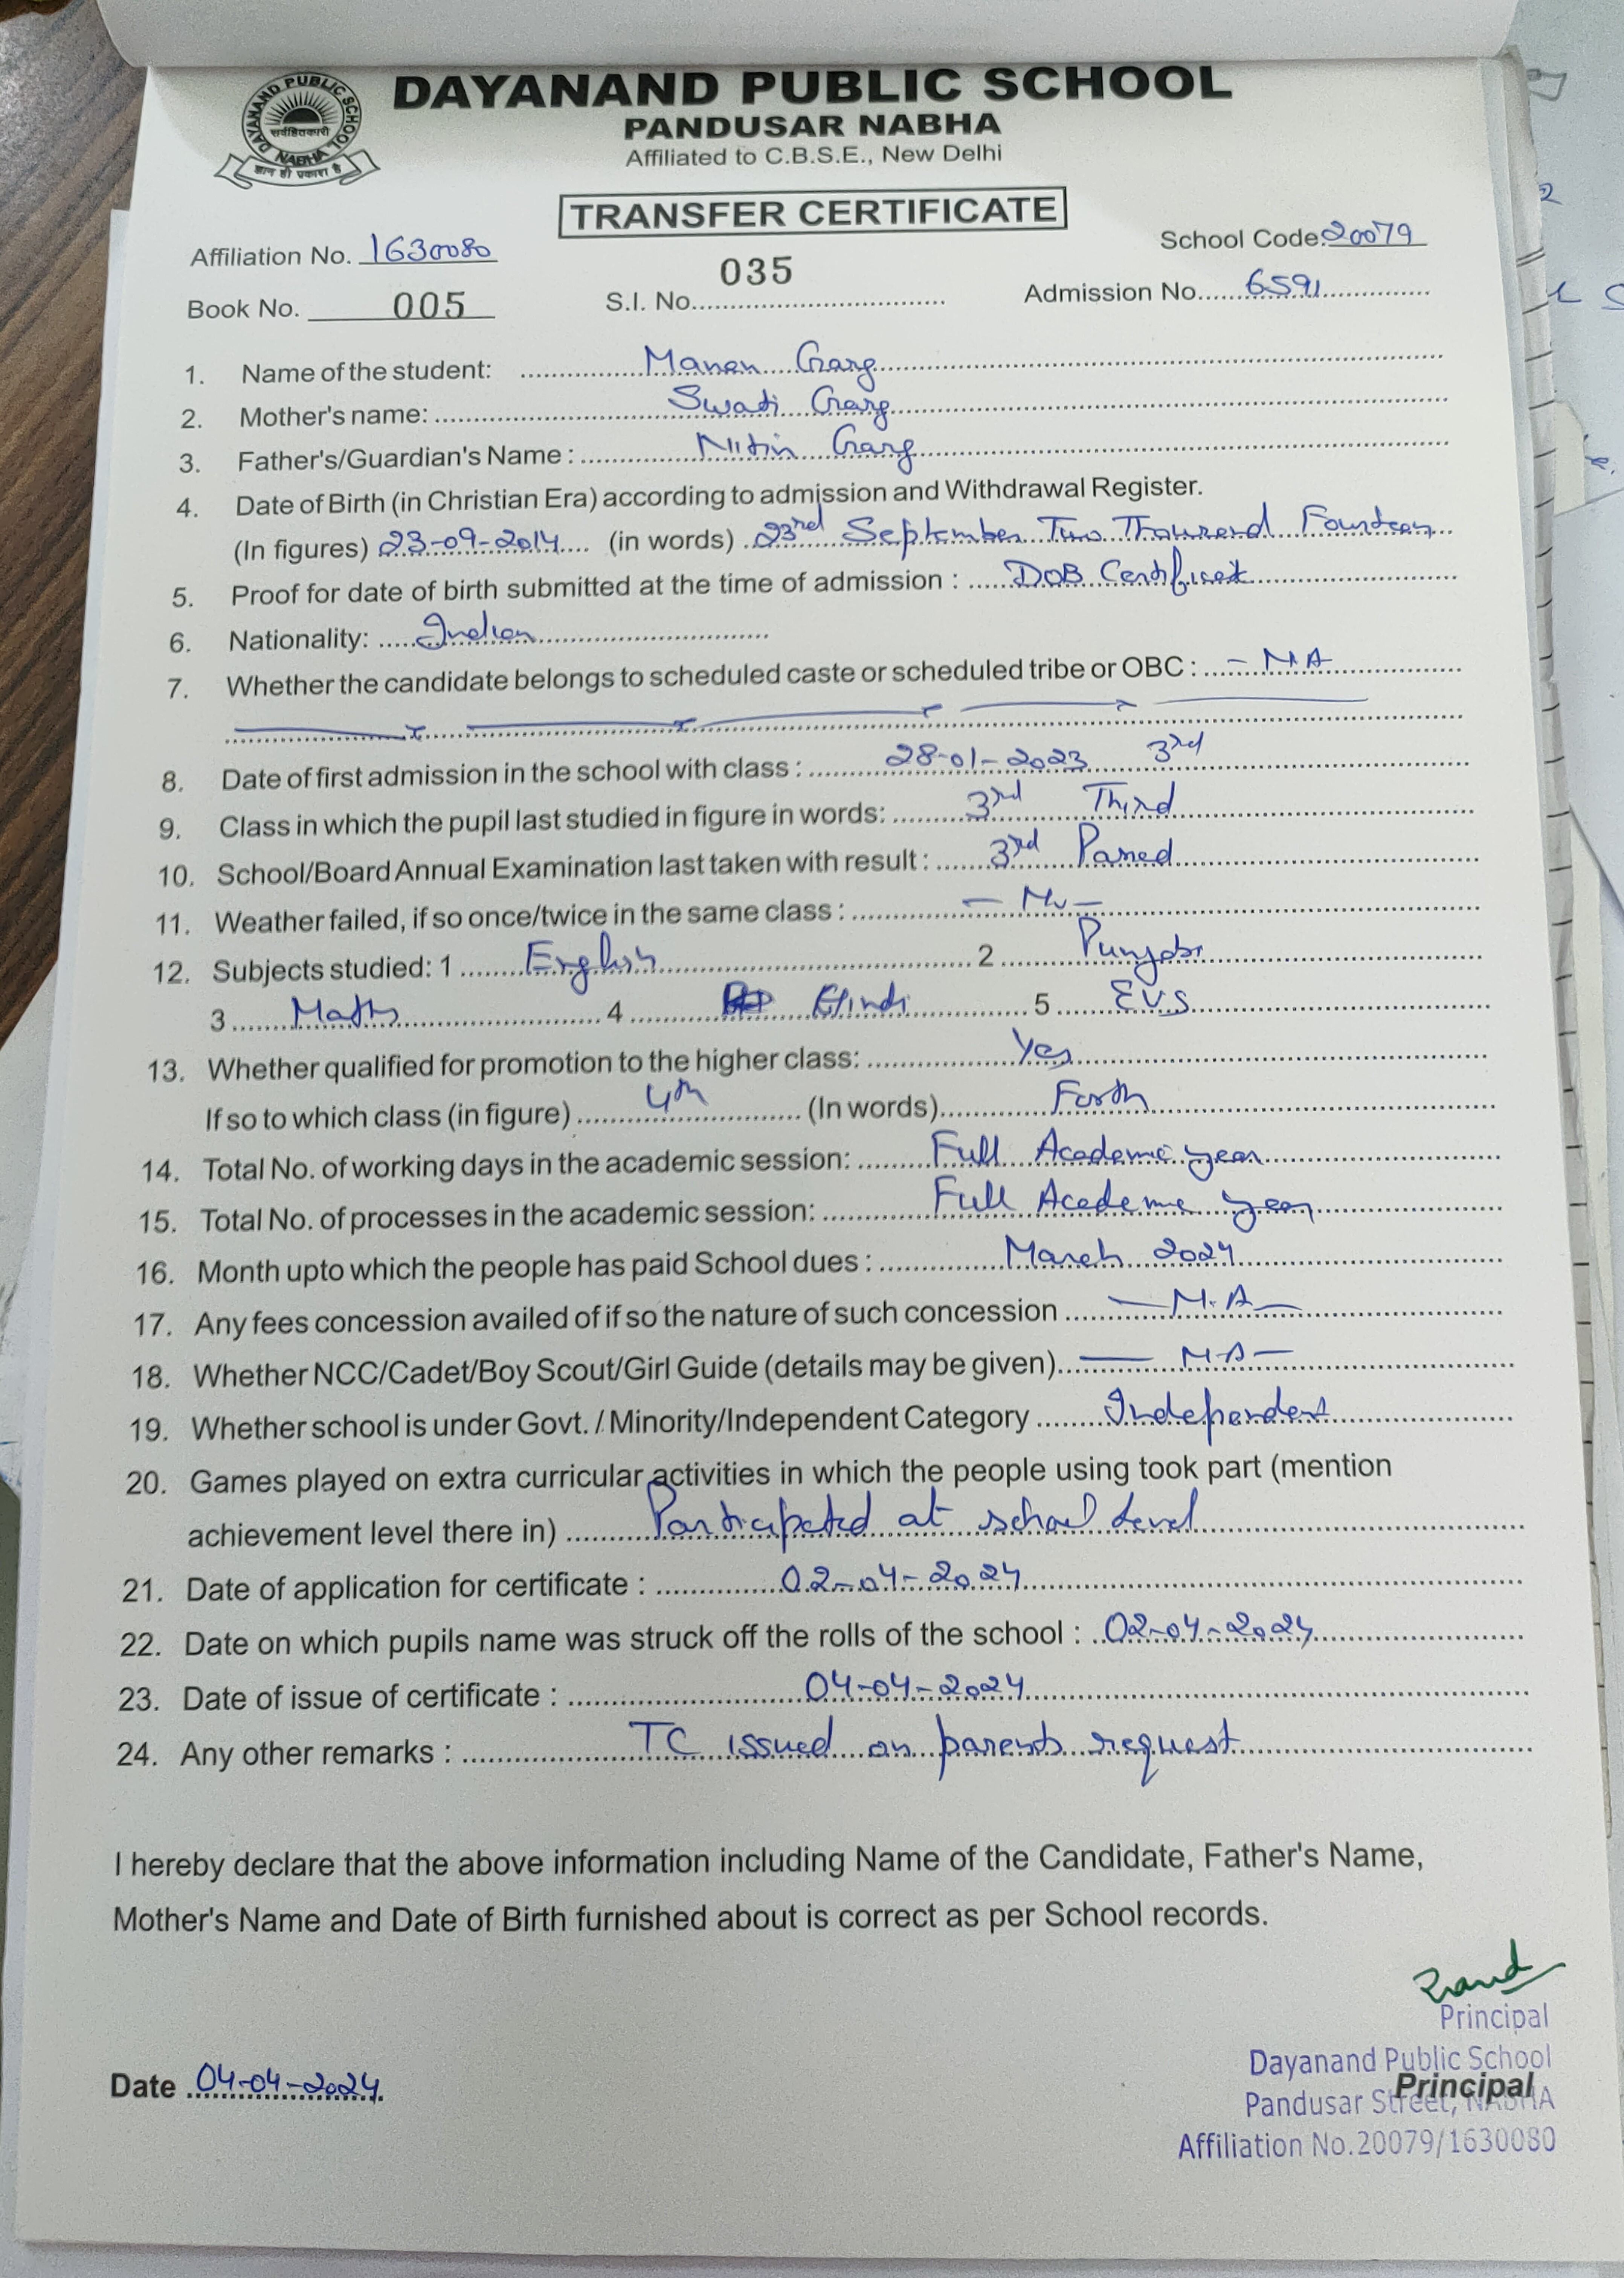 DAYANAND PUBLIC SCHOOL
DAYANAND PUBLIC SCHOOL
सर्वहितकारी
NABHA
ज्ञान ही प्रकाश है
PANDUSAR NABHA
Affiliated to C.B.S.E., New Delhi
TRANSFER CERTIFICATE
Affiliation No. 1630080 School Code: 20079
Book No. 005 S.I. No. 035 Admission No. 6591
1. Name of the student: Manan Garg
2. Mother's name: Swati Garg
3. Father's/Guardian's Name : Nitin Garg
4. Date of Birth (in Christian Era) according to admission and Withdrawal Register.
(In figures) 23-09-2014 (in words) 23rd September Two Thousand Fourteen
5. Proof for date of birth submitted at the time of admission : DOB Certificate
6. Nationality: Indian
7. Whether the candidate belongs to scheduled caste or scheduled tribe or OBC : - NA
8. Date of first admission in the school with class : 28-01-2023 3rd
9. Class in which the pupil last studied in figure in words: 3rd Third
10. School/Board Annual Examination last taken with result : 3rd Passed
11. Weather failed, if so once/twice in the same class : - No -
12. Subjects studied: 1 English 2 Punjabi
3 Maths 4 Hindi 5 EVS
13. Whether qualified for promotion to the higher class: Yes
If so to which class (in figure) 4th (In words) Forth
14. Total No. of working days in the academic session: Full Academic year
15. Total No. of processes in the academic session: Full Academic year
16. Month upto which the people has paid School dues : March 2024
17. Any fees concession availed of if so the nature of such concession - N.A -
18. Whether NCC/Cadet/Boy Scout/Girl Guide (details may be given) - N.A -
19. Whether school is under Govt. / Minority/Independent Category Independent
20. Games played on extra curricular activities in which the people using took part (mention
achievement level there in) Participated at school level
21. Date of application for certificate : 02-04-2024
22. Date on which pupils name was struck off the rolls of the school : 02-04-2024
23. Date of issue of certificate : 04-04-2024
24. Any other remarks : TC issued on parents request
I hereby declare that the above information including Name of the Candidate, Father's Name,
Mother's Name and Date of Birth furnished about is correct as per School records.
Principal
Dayanand Public School
Date 04-04-2024 Principal
Pandusar Street, NABHA
Affiliation No.20079/1630080